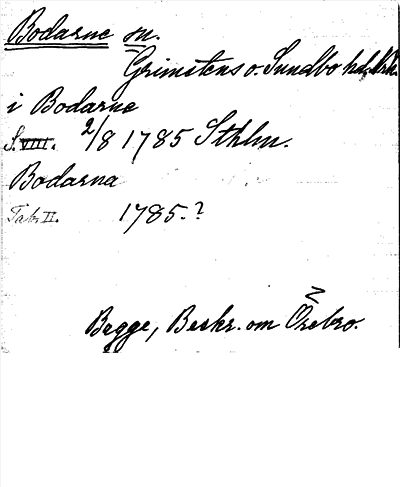 Bodarne sn.
Grimstens o. Sundbo hd, Nrk.
i Bodarne
S. VIII. 2/8 1785 Sthlm.
Bodarna
Tab. II. 1785.?
Begge, Beskr. om Örebro.